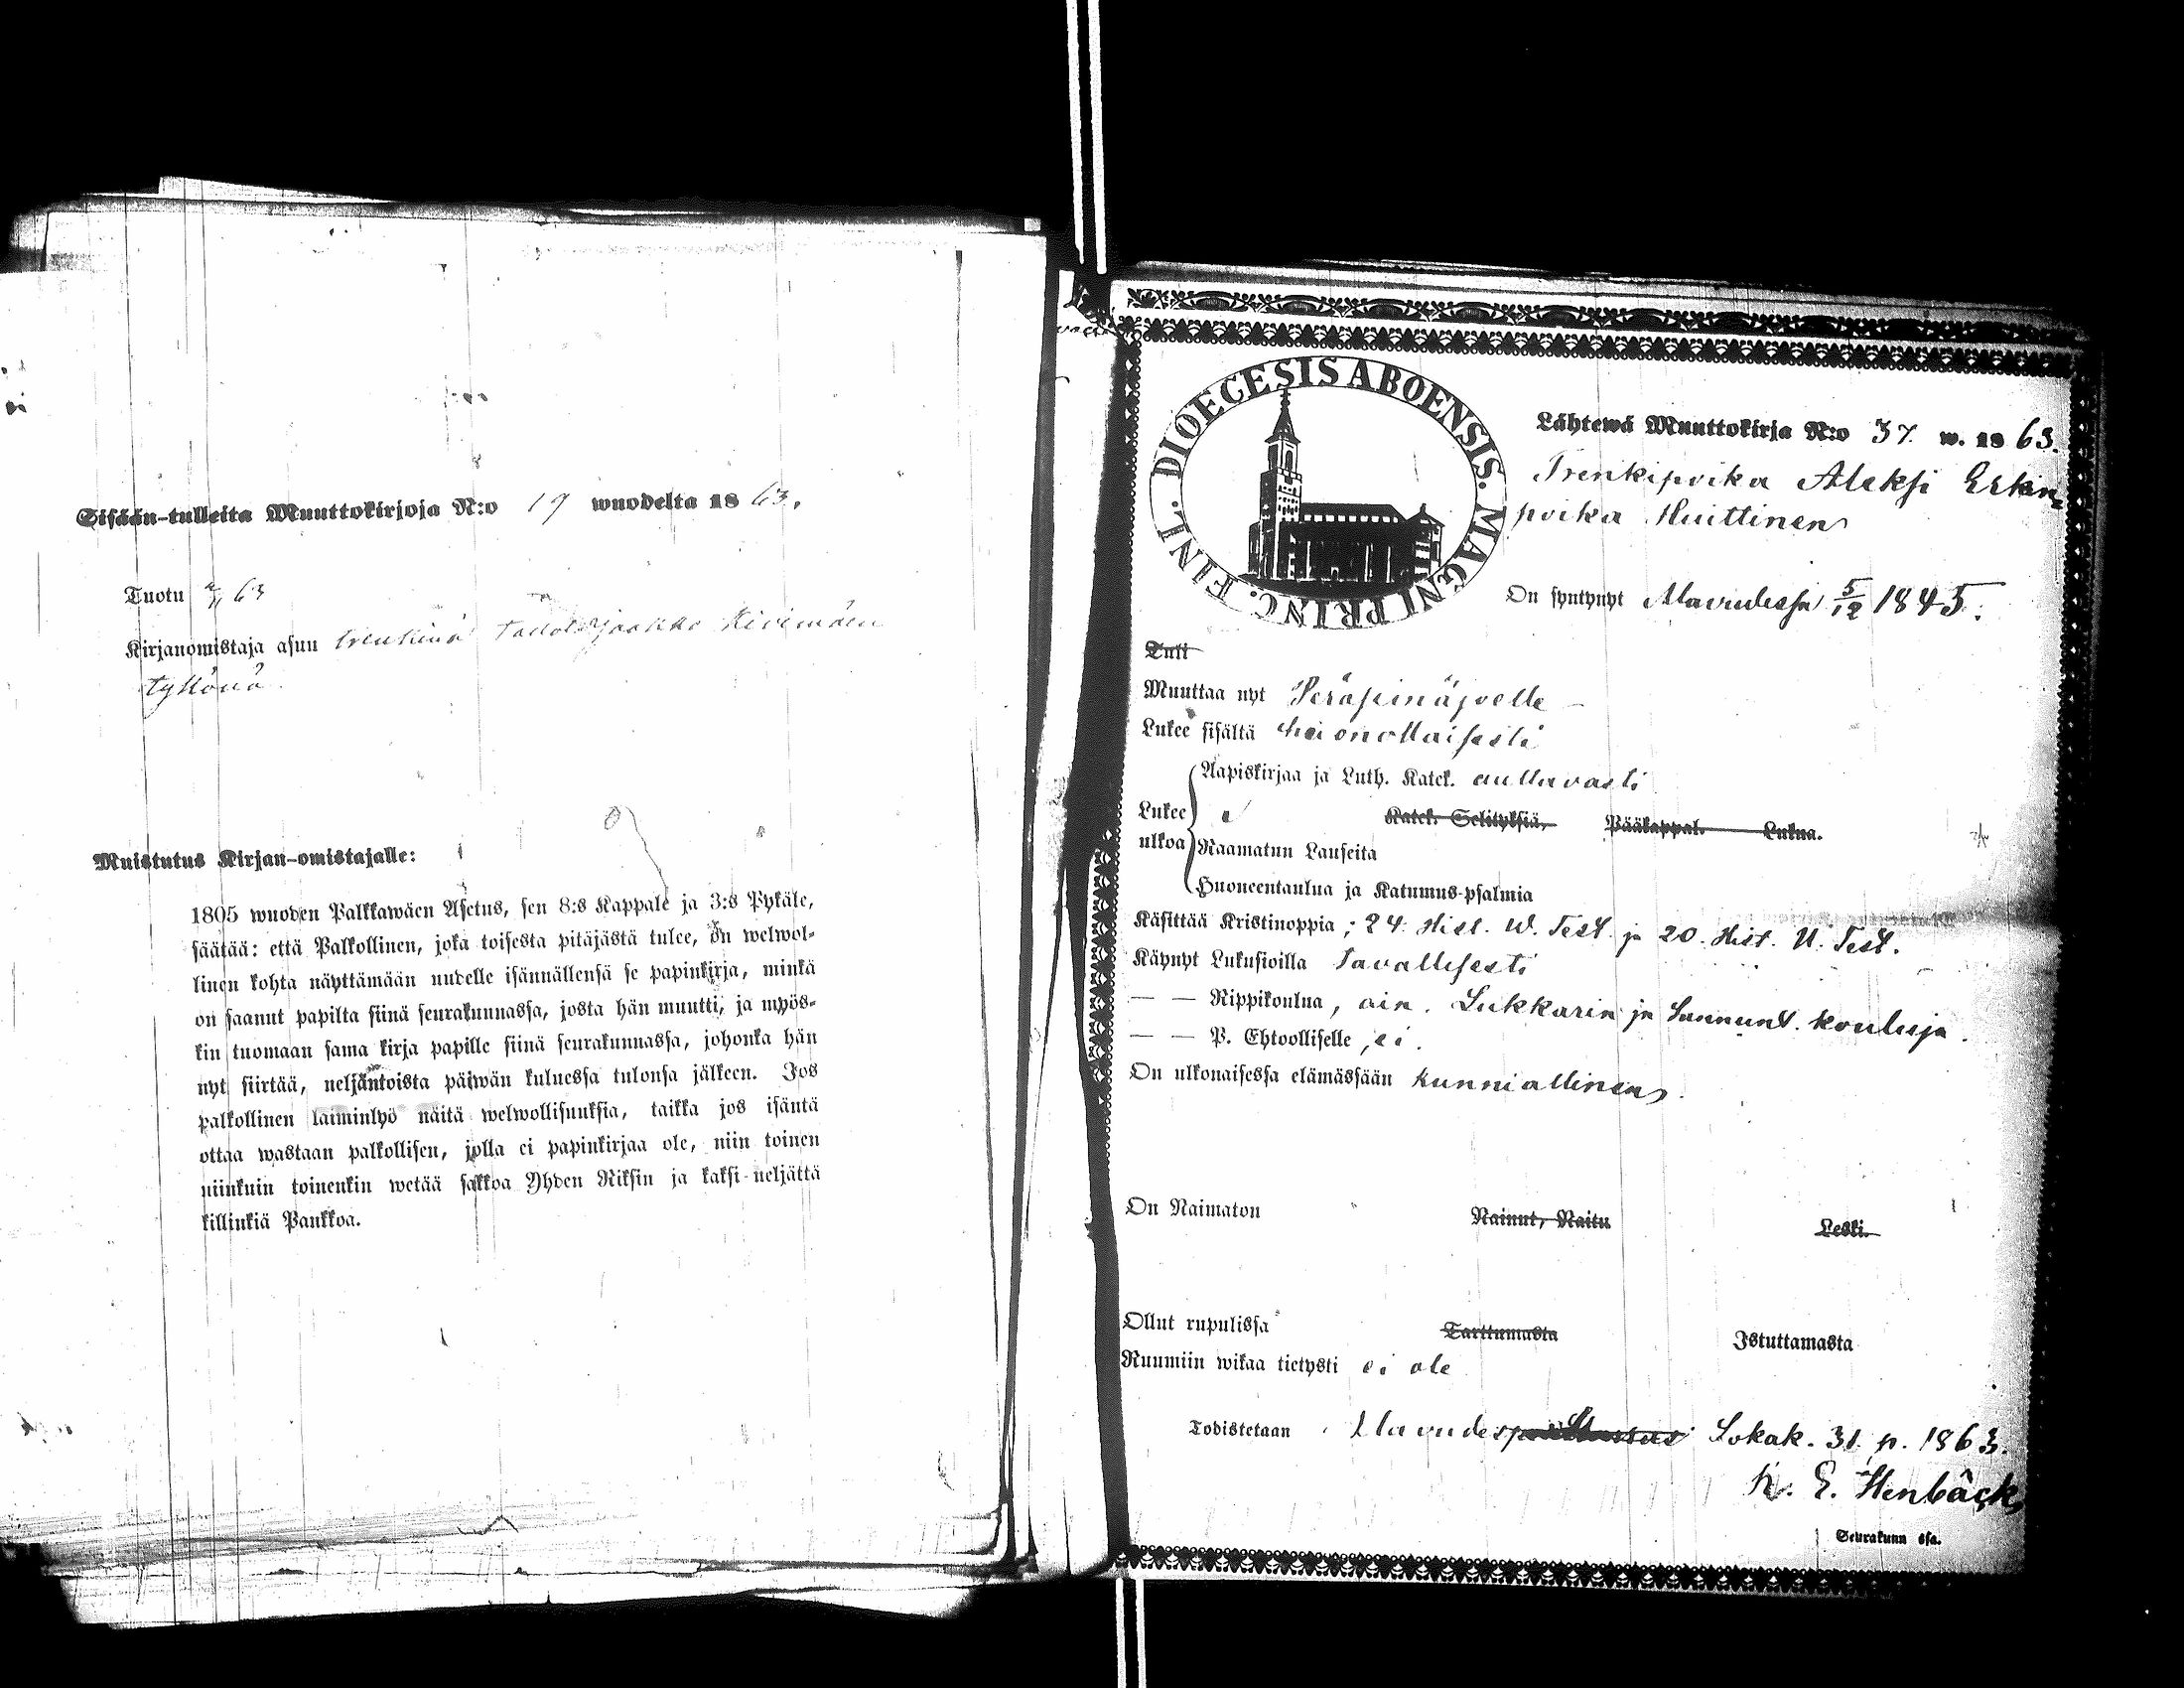 Sisään-tulleita Muuttokirjoja N:o 19 wuodelta 1863.
Tuotu 63
Kirjanomistaja asuu trenkinä Jaakko Kivimäen
tykönä.
Muistutus Kirjan-omistajalle:
1805 wuoden Palkkawäen Asetus, sen 8:s Kappale ja 3:s Pykäle,
säätää: että Palkollinen, joka toisesta pitäjästä tulee, on welwol-
linen kohta näyttämään uudelle isännällensä se papinkirja, minkä
on saanut papilta siinä seurakunnassa, josta hän muutti, ja myös-
kin tuomaan sama kirja papille siinä seurakunnassa, johonka hän
nyt siirtää, neljäntoista päiwän kuluessa tulonsa jälkeen. Jos
palkollinen laiminlyö näitä welwollisuuksia, taikka jos isäntä
ottaa wastaan palkollisen, jolla ei papinkirjaa ole, niin toinen
niinkuin toinenkin wetää sakkoa Yhden Riksin ja kaksi neljättä
killinkiä Pankkoa.
DIOECESIS ABOENSIS. MAGNI PRINC. FINL.
Lähtewä Muuttokirja N:o 37. w. 1863.
Trenkipoika Aleksi Erkin
poika Huittinen
On syntynyt Alavudessa 5/12 1845.
Tuli
Muuttaa nyt Peräseinäjoelle
Lukee sisältä huonollaisesti
Aapiskirjaa ja Luth. Katek. auttavasti
Lukee ulkoa
Katek. Selityksiä, Pääkappal. Lukua.
Raamatun Lauseita
Huoneentaulua ja Katumus-psalmia
Käsittää Kristinoppia ; 24. Hist. W. Test. ja 20. Hist. U. Test.
Käynyt Lukusioilla Tavallisesti
— — Rippikoulua, ain. Lukkarin ja Sunnunt. kouluja.
— — P. Ehtoolliselle, ei.
On ulkonaisessa elämässään kunniallinen.
On Naimaton Nainut, Naitu Leski.
Ollut rupulissa Tarttumasta Istuttamasta
Ruumiin wikaa tietysti ei ole
Todistetaan Alavudes Lokak. 31. p. 1863.
K. E. Stenbäck
Seurakunn ssa.